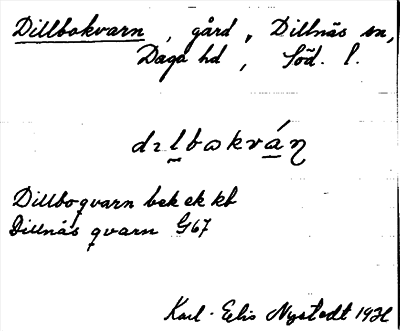 Dillbokvarn, gård, Dillnäs sn,
Daga hd, Söd. l.
dɪlbωkván
Dillboqvarn bek ek kb
Dillnäs qvarn G67
Karl-Eelis Nystedt